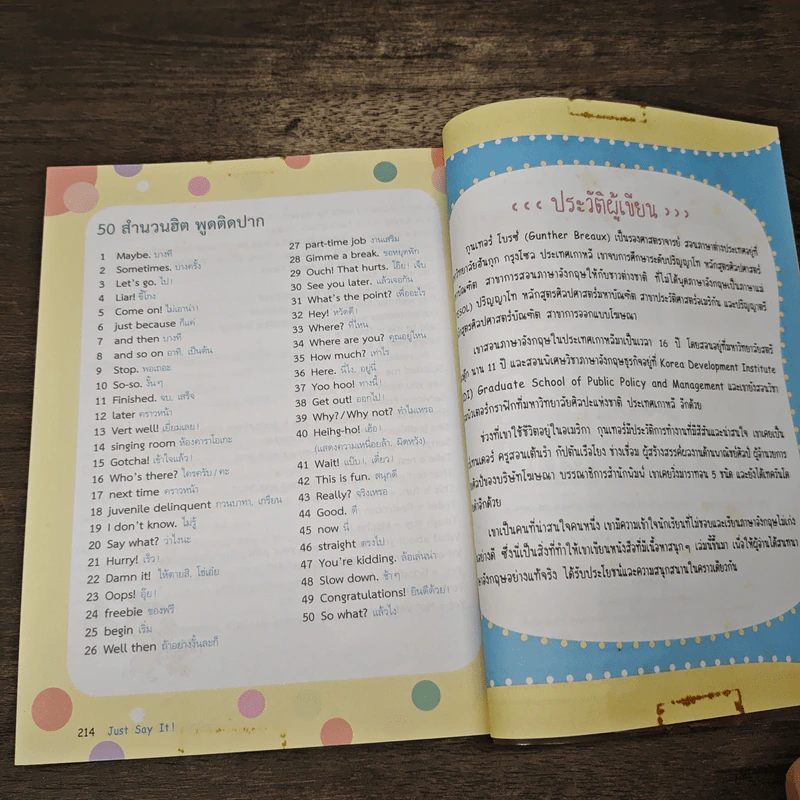 50 สำนวนฮิต พูดติดปาก
1 Maybe. บางที
2 Sometimes. บางครั้ง
3 Let's go. ไป!
4 Liar! ขี้โกง
5 Come on! ไม่เอาน่า!
6 just because ก็แค่
7 and then บางที
8 and so on อาทิ, เป็นต้น
9 Stop. พอเถอะ
10 So-so. งั้นๆ
11 Finished. จบ, เสร็จ
12 later คราวหน้า
13 Vert well! เยี่ยมเลย!
14 singing room ห้องคาราโอเกะ
15 Gotcha! เข้าใจแล้ว!
16 Who's there? ใครครับ/คะ
17 next time คราวหน้า
18 juvenile delinquent กวนบาทา, เกรียน
19 I don't know. ไม่รู้
20 Say what? ว่าไงนะ
21 Hurry! เร็ว!
22 Damn it! ให้ตายสิ, โธ่เอ๊ย
23 Oops! อุ๊ย!
24 freebie ของฟรี
25 begin เริ่ม
26 Well then ถ้าอย่างงั้นละก็
27 part-time job งานเสริม
28 Gimme a break. ขอหยุดพัก
29 Ouch! That hurts. โอ๊ย! เจ็บ
30 See you later. แล้วเจอกัน
31 What's the point? เพื่ออะไร
32 Hey! หวัดดี!
33 Where? ที่ไหน
34 Where are you? คุณอยู่ไหน
35 How much? เท่าไร
36 Here. นี่ไง, อยู่นี่
37 Yoo hoo! ทางนี้!
38 Get out! ออกไป!
39 Why? / Why not? ทำไมเหรอ
40 Heihg-ho! เฮ้อ!
(แสดงความเหนื่อยล้า, ผิดหวัง)
41 Wait! แป๊บ!, เดี๋ยว!
42 This is fun. สนุกดี
43 Really? จริงเหรอ
44 Good. ดี
45 now นี่
46 straight ตรงไป
47 You're kidding. ล้อเล่นน่า
48 Slow down. ช้าๆ
49 Congratulations! ยินดีด้วย!
50 So what? แล้วไง
214 Just Say It!
‹‹‹ ประวัติผู้เขียน ›››
กุนเทอร์ โบรซ์ (Gunther Breaux) เป็นรองศาสตราจารย์ สอนภาษาต่างประเทศอยู่ที่
วิทยาลัยฮันกุก กรุงโซล ประเทศเกาหลี เขาจบการศึกษาระดับปริญญาโท หลักสูตรศิลปศาสตร์
มหาบัณฑิต สาขาการสอนภาษาอังกฤษให้กับชาวต่างชาติ ที่ไม่ได้พูดภาษาอังกฤษเป็นภาษาแม่
ปริญญาโท หลักสูตรศิลปศาสตร์มหาบัณฑิต สาขาประวัติศาสตร์อเมริกัน และปริญญาตรี
หลักสูตรศิลปศาสตร์บัณฑิต สาขาการออกแบบโฆษณา
เขาสอนภาษาอังกฤษในประเทศเกาหลีมาเป็นเวลา 16 ปี โดยสอนอยู่ที่มหาวิทยาลัยสตรี
นาน 11 ปี และสอนพิเศษวิชาภาษาอังกฤษธุรกิจอยู่ที่ Korea Development Institute
Graduate School of Public Policy and Management และเขายังสอนวิชา
คอมพิวเตอร์กราฟิกที่มหาวิทยาลัยศิลปะแห่งชาติ ประเทศเกาหลี อีกด้วย
ช่วงที่เขาใช้ชีวิตอยู่ในอเมริกา กุนเทอร์มีประวัติการทำงานที่มีสีสันและน่าสนใจ เขาเคยเป็น
บาร์เทนเดอร์ ครูสอนเต้นรำ กัปตันเรือโยง ช่างเชื่อม ผู้สร้างสรรค์ผลงานด้านพาณิชย์ศิลป ผู้อำนวยการ
ของบริษัทโฆษณา บรรณาธิการสำนักพิมพ์ เขาเคยวิ่งมาราทอน 5 ชนิด และยังได้เทควันโด
อีกด้วย
เขาเป็นคนที่น่าสนใจคนหนึ่ง เขามีความเข้าใจนักเรียนที่ไม่ชอบและเรียนภาษาอังกฤษไม่เก่ง
อย่างดี ซึ่งนี่เป็นสิ่งที่ทำให้เขาเขียนหนังสือที่มีเนื้อหาสนุกๆ เล่มนี้ขึ้นมา เพื่อให้ผู้อ่านได้สนทนา
ภาษาอังกฤษอย่างแท้จริง ได้รับประโยชน์และความสนุกสนานในคราวเดียวกัน